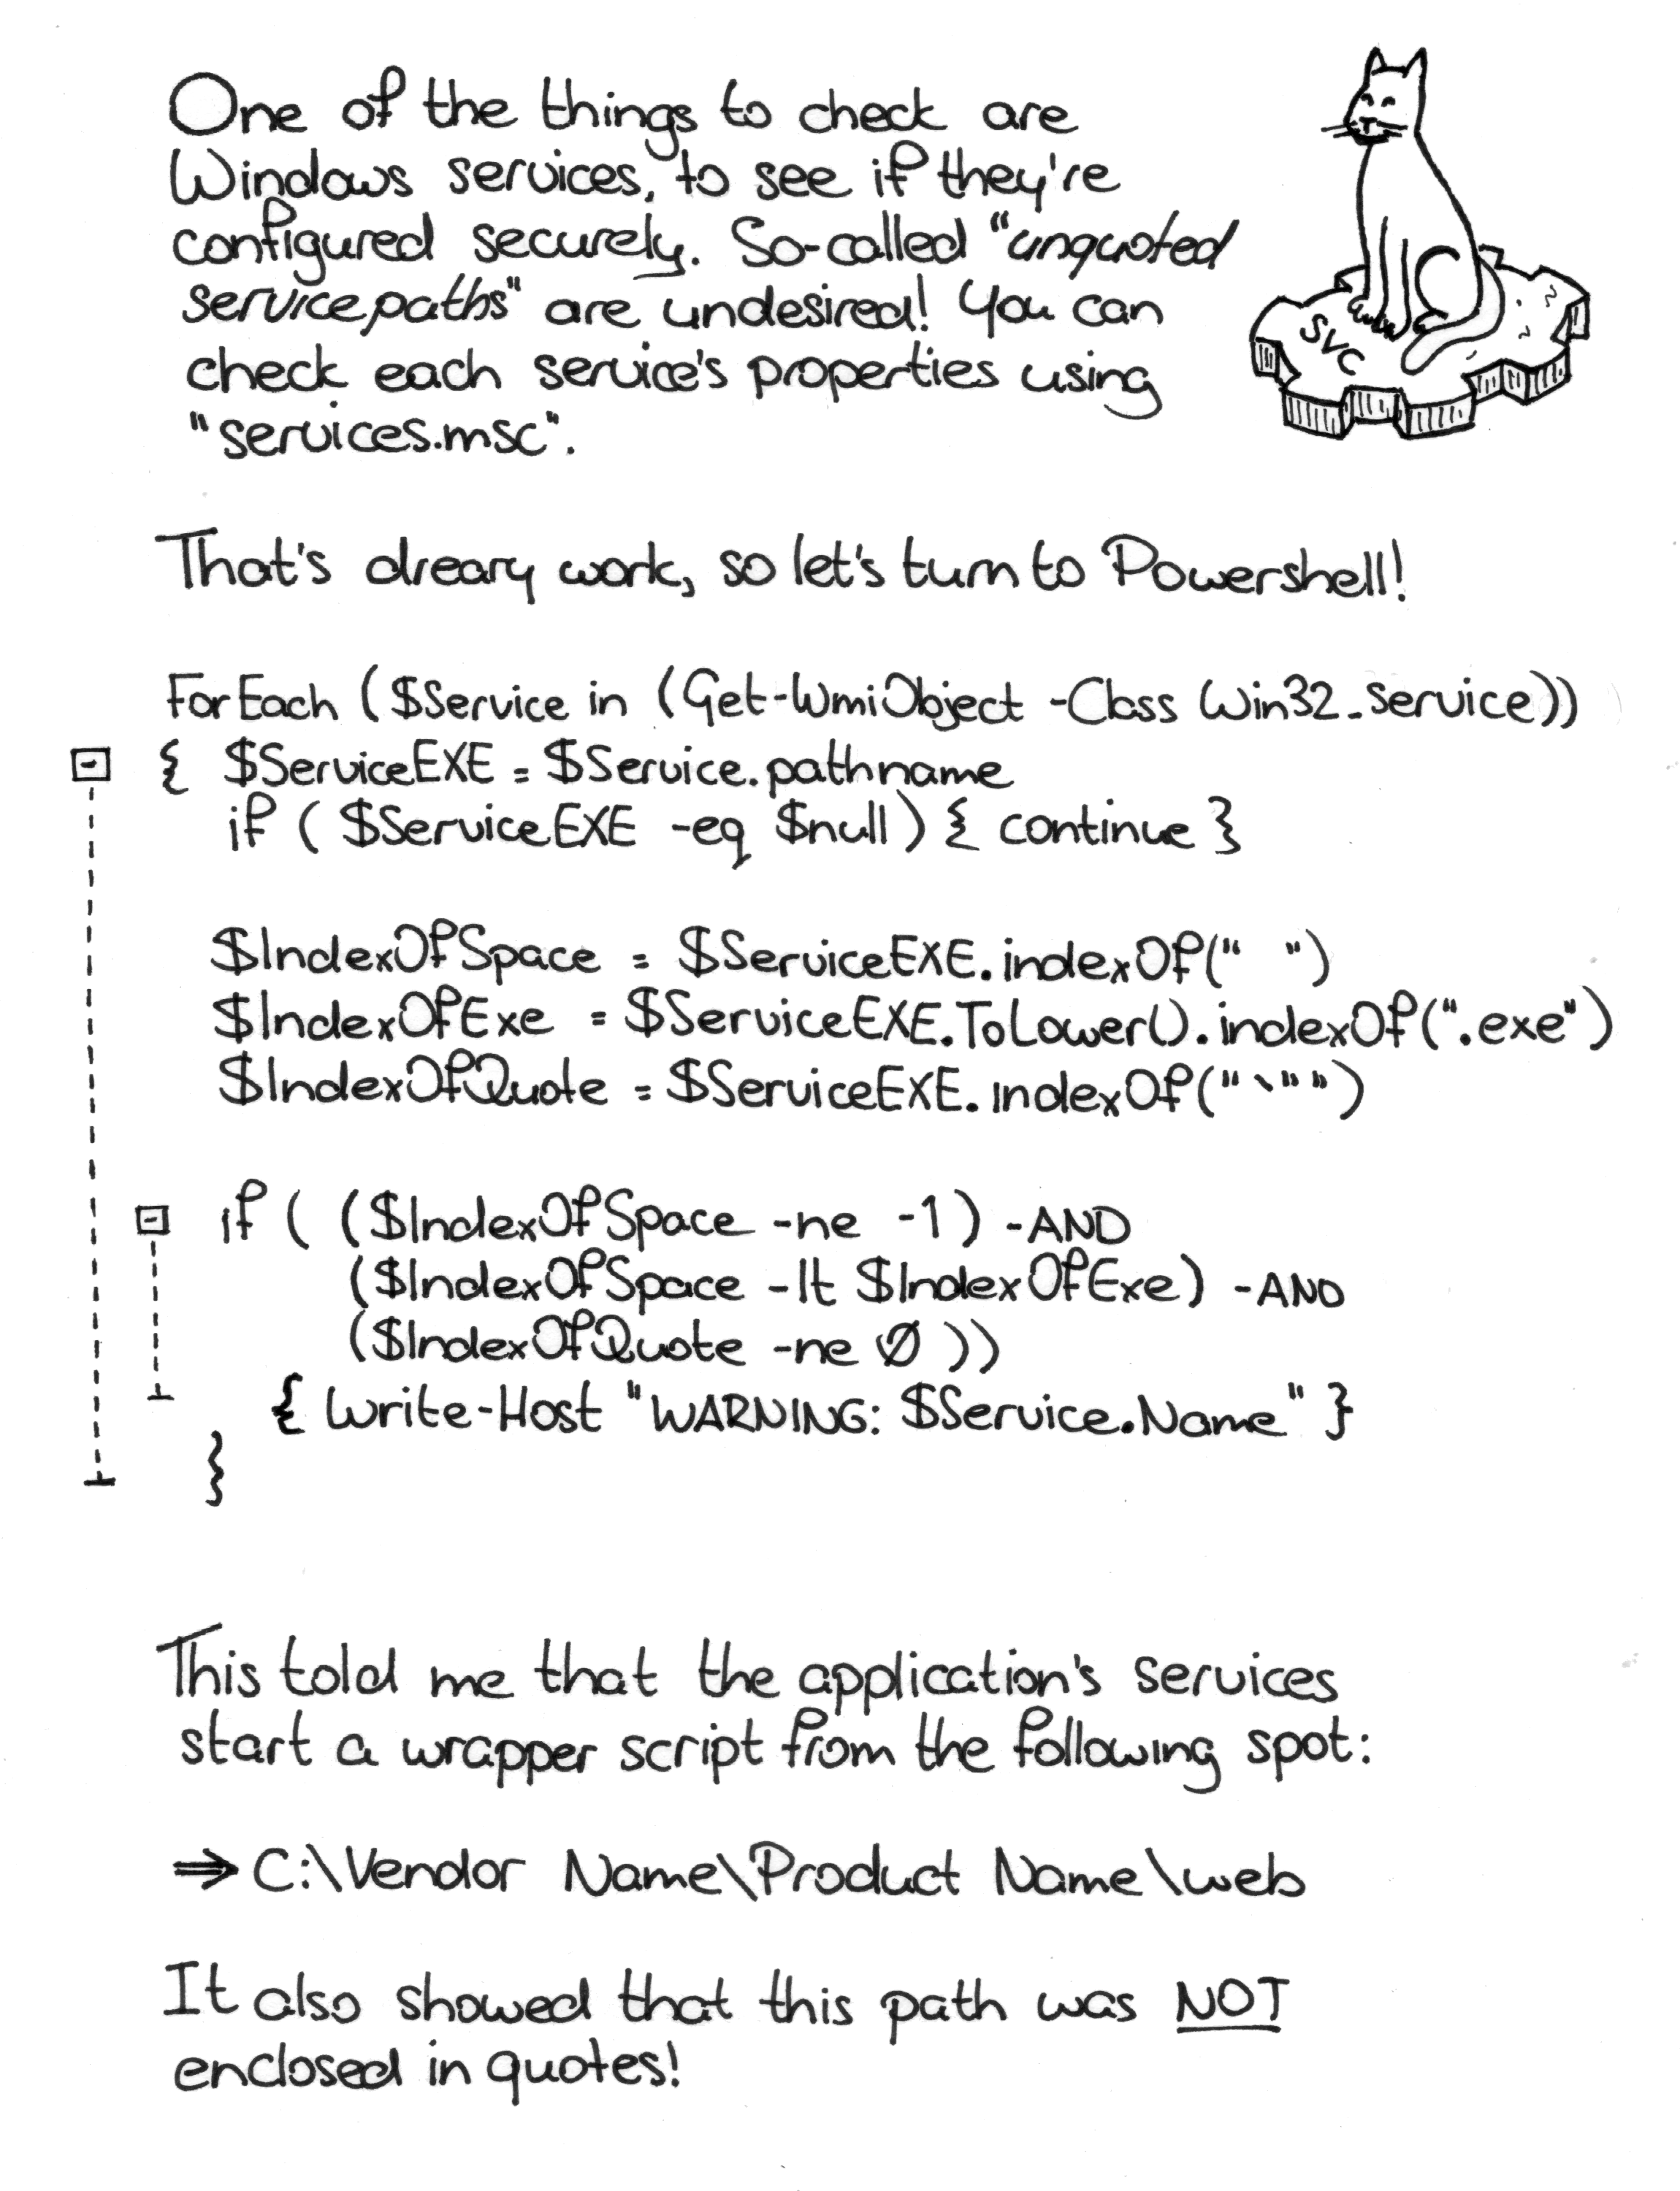 One of the things to check are
Windows services, to see if they're
configured securely. So-called "unquoted
service paths" are undesired! You can
check each service's properties using
"services.msc".
SVC
That's dreary work, so let's turn to Powershell!
ForEach ($Service in (Get-WmiObject -Class Win32_service))
{ $ServiceEXE = $Service.pathname
if ( $ServiceEXE -eq $null) { continue }
$IndexOfSpace = $ServiceEXE.indexOf(" ")
$IndexOfExe = $ServiceEXE.ToLower().indexOf(".exe")
$IndexOfQuote = $ServiceEXE.indexOf("`"")
if ( ($IndexOfSpace -ne -1) -AND
($IndexOfSpace -lt $IndexOfExe) -AND
($IndexOfQuote -ne 0 ))
{ Write-Host "WARNING: $Service.Name" }
}
This told me that the application's services
start a wrapper script from the following spot:
⇒ C:\Vendor Name\Product Name\web
It also showed that this path was NOT
enclosed in quotes!